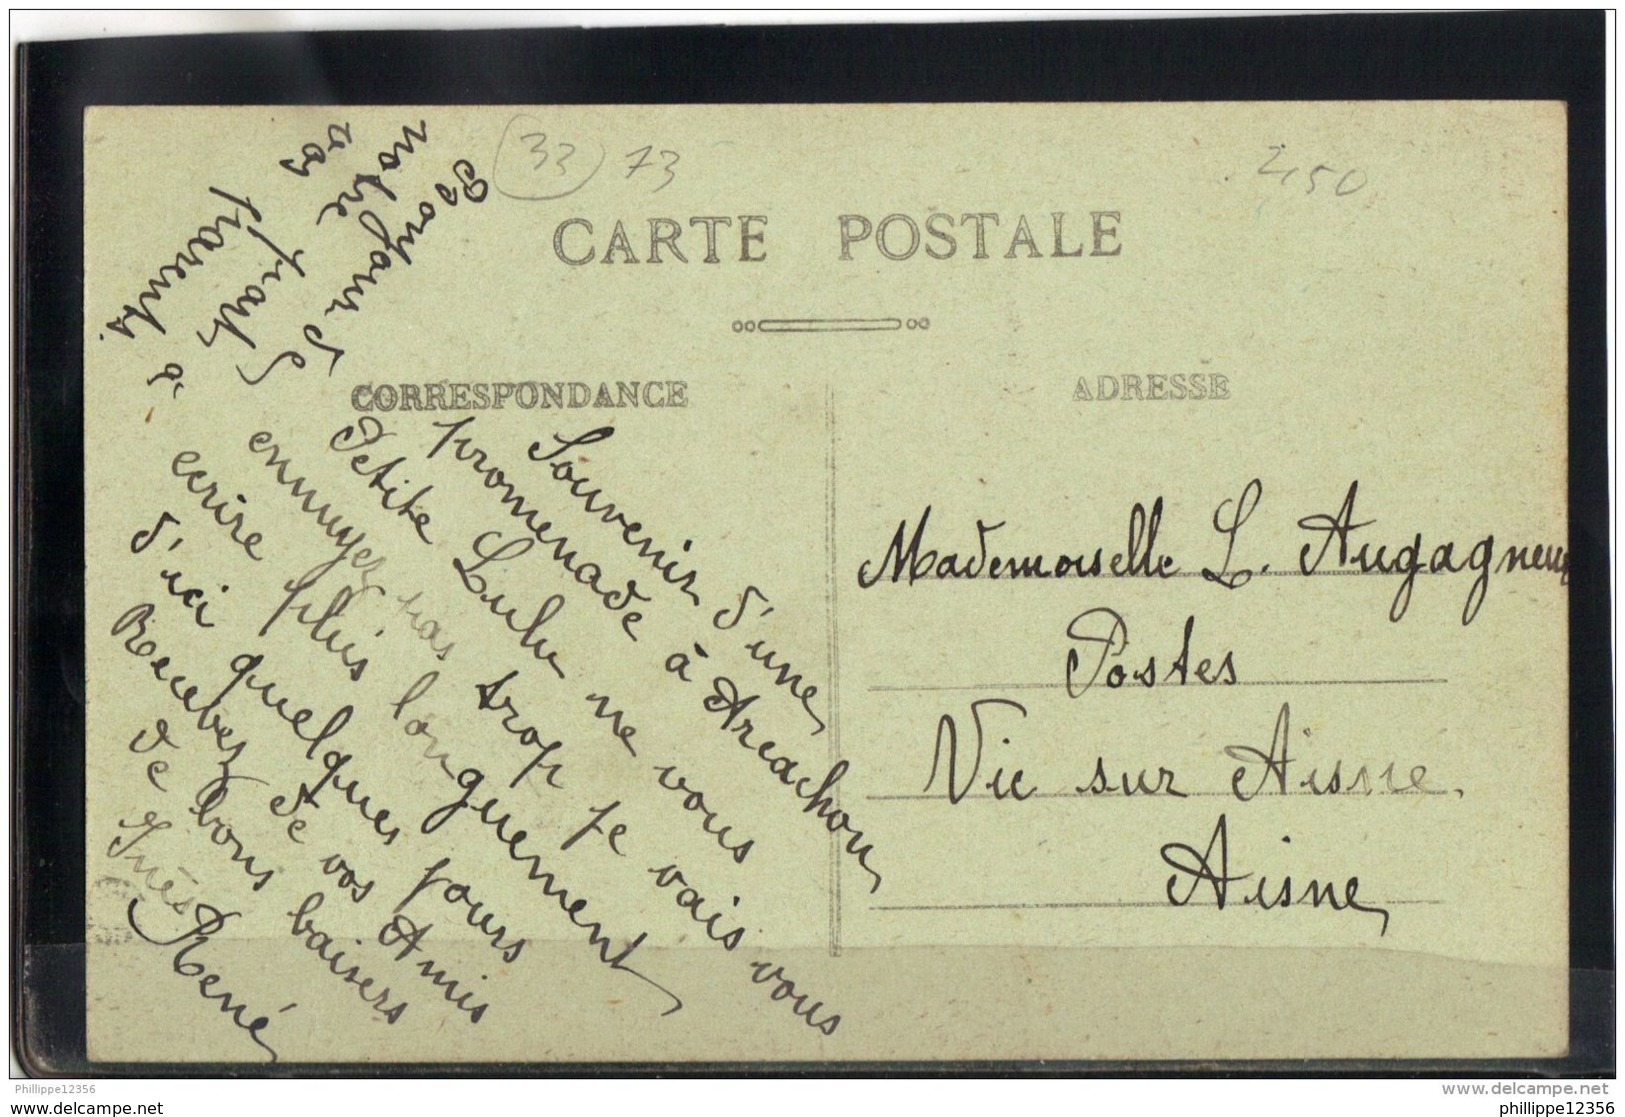 33 73
2,50
CARTE POSTALE
CORRESPONDANCE
ADRESSE
Souvenir d'une
promenade à Arcachon
Petite Lulu ne vous
ennuyez pas trop je vais vous
ecrire plus longuement
d'ici quelques jours
Recevez de vos Amis
de bons baisers
Inès René
Bonjour de
notre part
à vos
parents.
Mademoiselle L. Augagneur
Postes
Vic sur Aisne.
Aisne
Philippe12356
www.delcampe.net
philippe12356
phillippe12356